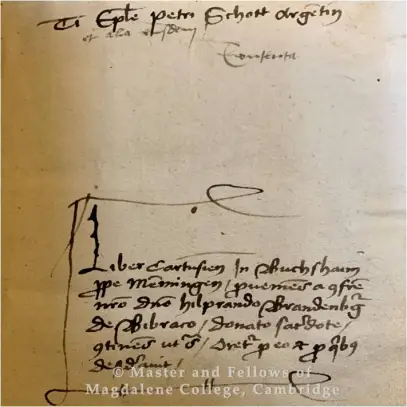 Ti Eple petri Schott Argētin
et alia eiusdem
Contenta
Liber Cartusien In Buchshaim
ppe Memingen / proueniēs a 9fre
nro dno hilprando Brandenbg
de Bibraco / donato sacdote /
9tinēs ut s / Oretr p eo et p qibg
desiduit /
© Master and Fellows of
Magdalene College, Cambridge